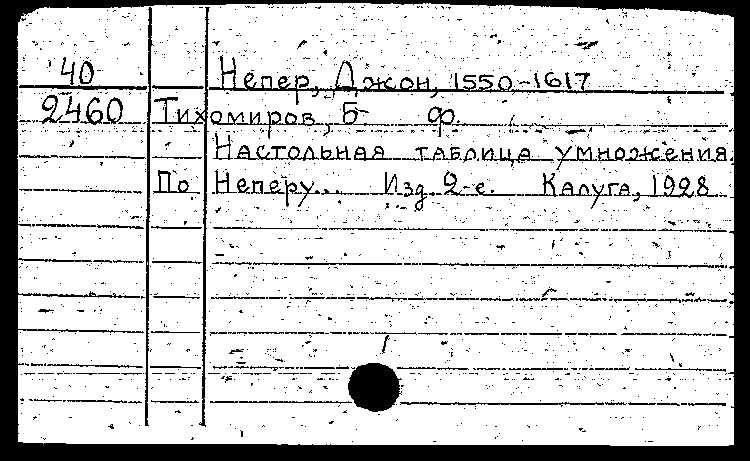 40 Непер, Джон, 1550-1617
2460 Тихомиров, Б ф.
Настольная таблица умножения.
По Неперу... Изд 2-е. Калуга, 1928